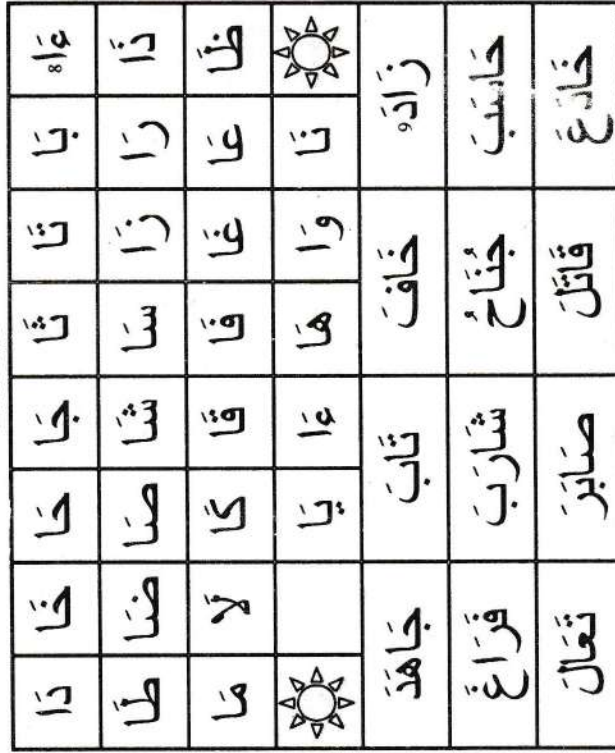 ءَا8 بَا تَا ثَا جَا حَا خَا دَا
ذَا رَا زَا سَا شَا صَا ضَا طَا
ظَا عَا غَا فَا قَا كَا لَا مَا
نَا وَا هَا ءَا يَا
زَادَ9 خَافَ تَابَ جَاهَدَ
حَاسَبَ جُنَاحُ شَارَبَ فَرَاغَ
خَادَعَ قَاتَلَ صَابَرَ تَعَالَ